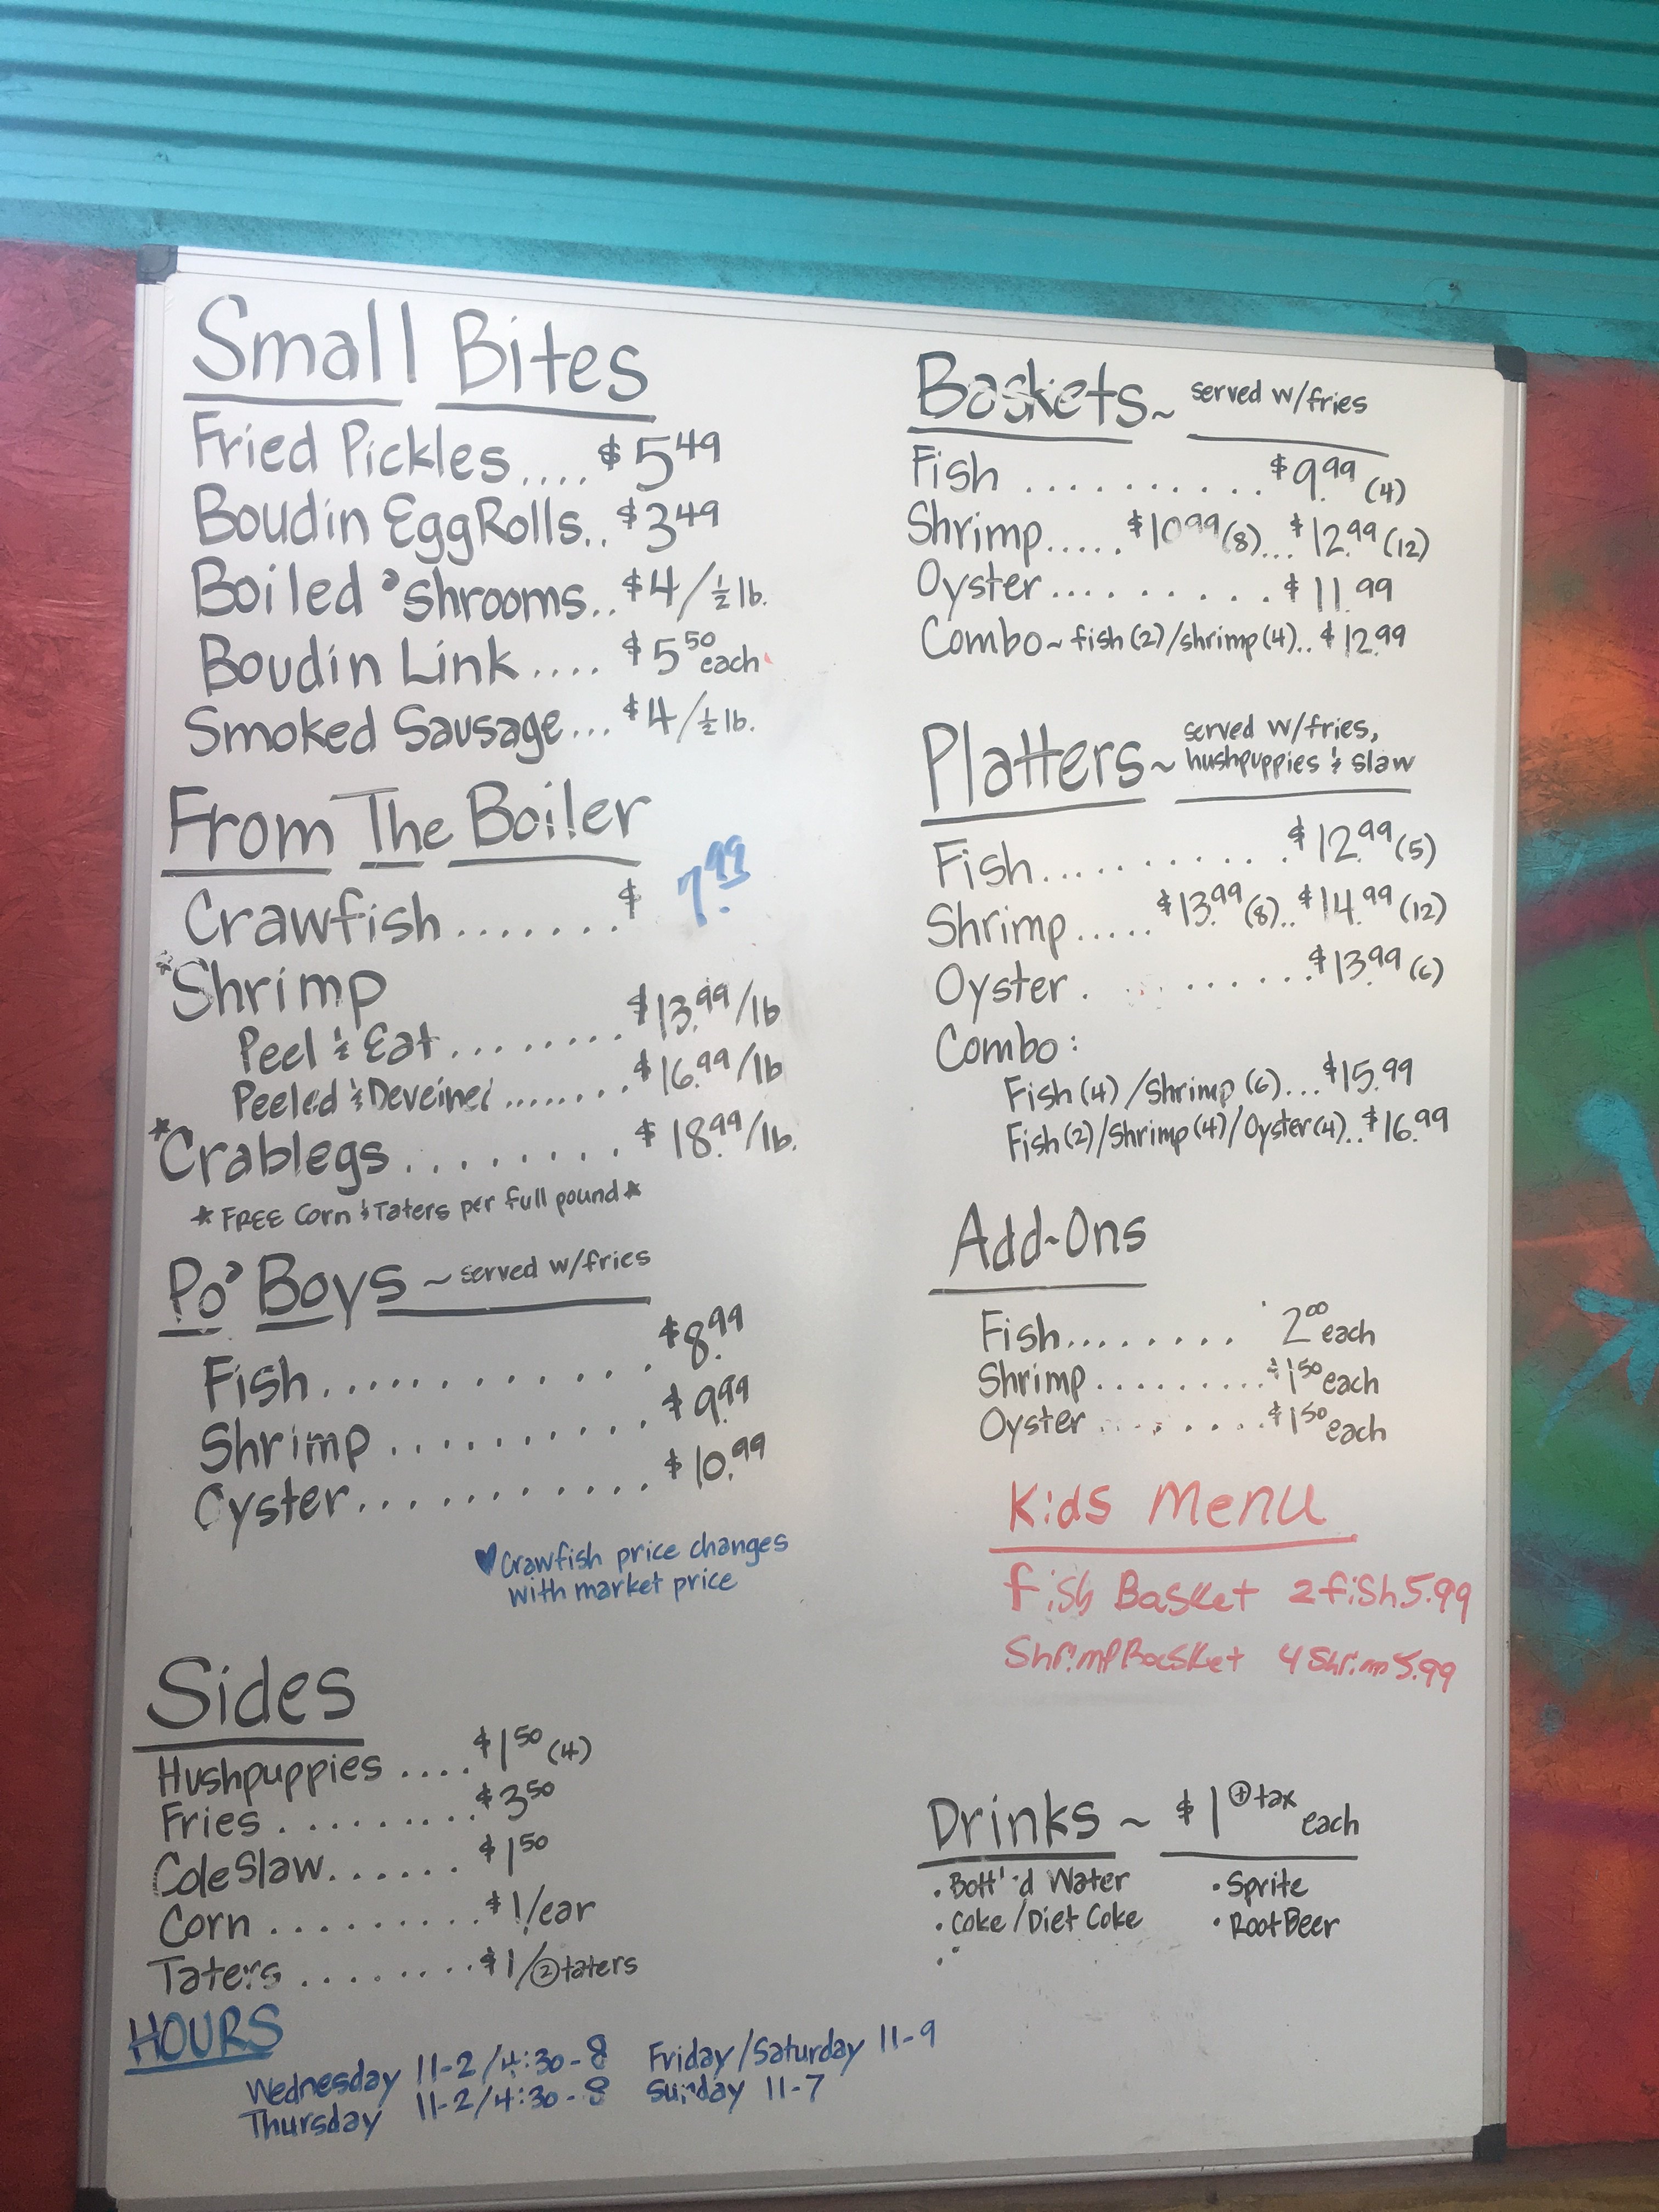 Small Bites
Fried Pickles.... $5 49
Boudin EggRolls.. $3 49
Boiled 'shrooms.. $4/½ lb.
Boudin Link.... $5 50 each
Smoked Sausage... $4/½ lb.
From The Boiler
Crawfish....... $ 7.99
*Shrimp
Peel & Eat........ $13.99/lb
Peeled & Deveined........ $16.99/lb
*Crablegs......... $18.99/lb.
*FREE Corn & Taters per full pound*
Po' Boys ~ served w/fries
Fish............ $8.99
Shrimp........... $9.99
Oyster............ $10.99
♥Crawfish price changes
with market price
Sides
Hushpuppies.... $1 50 (4)
Fries.......... $3 50
ColeSlaw...... $1 50
Corn.......... $1/ear
Taters........ $1/② taters
HOURS
Wednesday 11-2/4:30-8 Friday/Saturday 11-9
Thursday 11-2/4:30-8 Sunday 11-7
Baskets~ served w/fries
Fish.......... $9.99 (4)
Shrimp..... $10 99 (8)... $12.99 (12)
Oyster.......... $11.99
Combo~ fish (2)/shrimp (4).. $12.99
Platters~ served w/fries,
hushpuppies & slaw
Fish.......... $12.99 (5)
Shrimp..... $13.99 (8).. $14.99 (12)
Oyster. ....... $13.99 (6)
Combo:
Fish (4) /Shrimp (6)... $15.99
Fish (2)/Shrimp (4)/Oyster (4).. $16.99
Add-Ons
Fish........ 2 00 each
Shrimp.......... $1 50 each
Oyster........ $1 50 each
Kids Menu
Fish Basket 2 fish 5.99
Shrimp Basket 4 Shrimp 5.99
Drinks ~ $1 ⊕ tax each
• Bott'd Water • Sprite
• Coke/Diet Coke • RootBeer